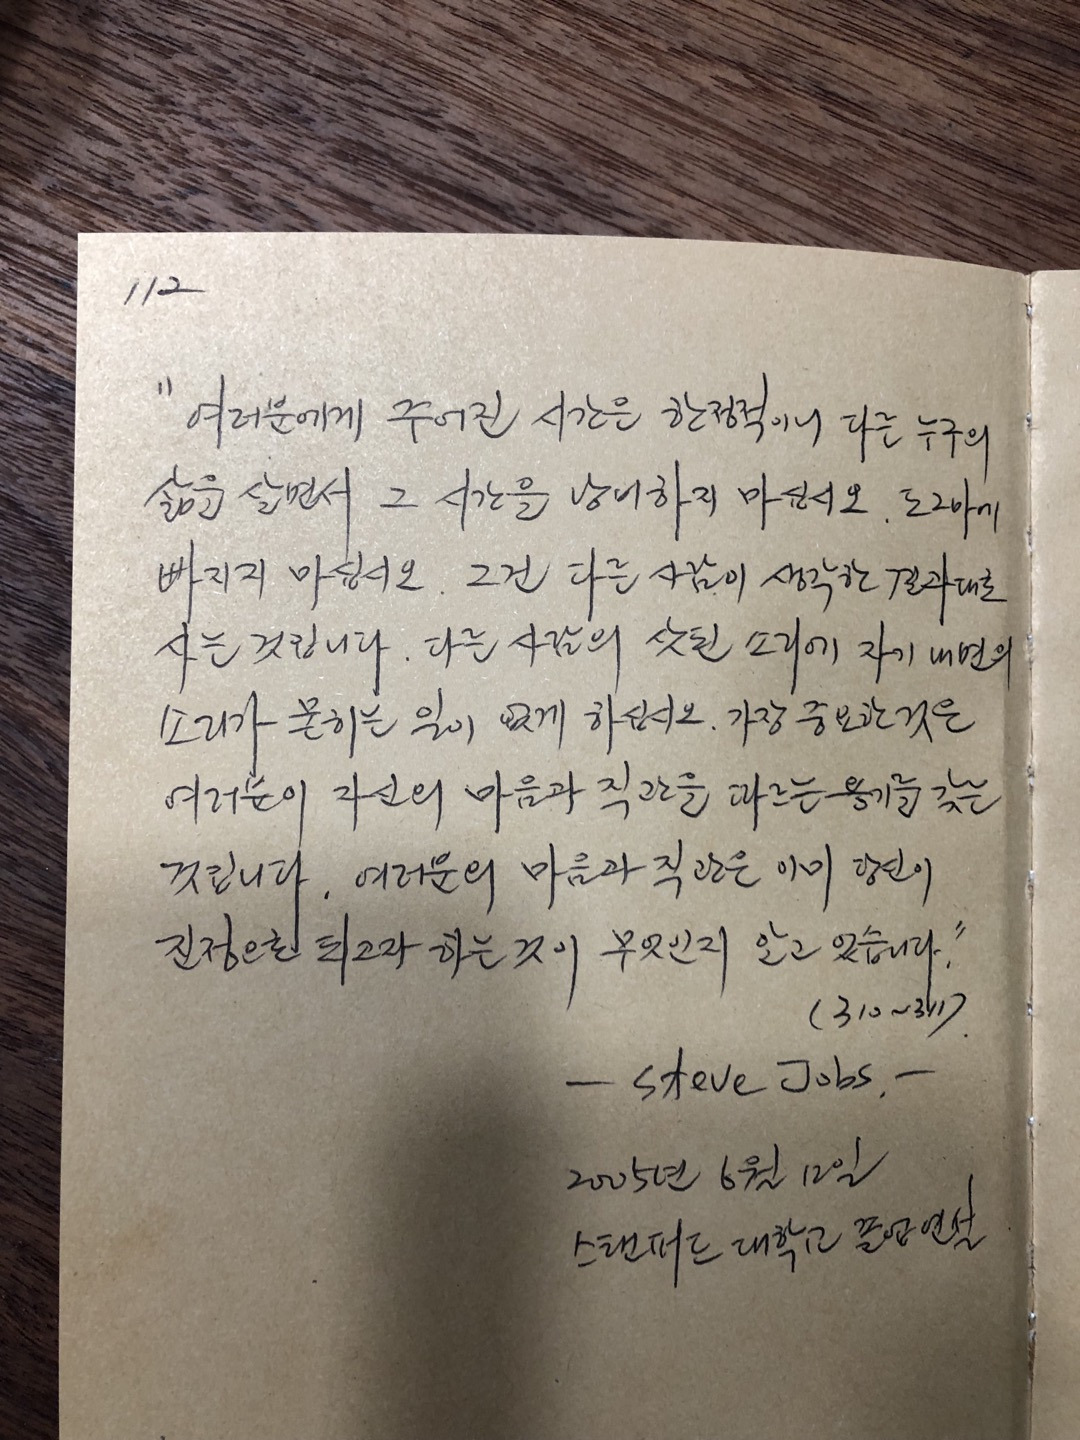 112
"여러분에게 주어진 시간은 한정적이니 다른 누구의
삶을 살면서 그 시간을 낭비하지 마십시오. 도그마에
빠지지 마십시오. 그건 다른 사람이 생각한 결과대로
사는 것입니다. 다른 사람의 잣된 소리에 자기 내면의
소리가 묻히는 일이 없게 하십시오. 가장 중요한 것은
여러분이 자신의 마음과 직관을 따르는 용기를 갖는
것입니다. 여러분의 마음과 직관은 이미 당신이
진정으로 되고자 하는 것이 무엇인지 알고 있습니다."
(310~311).
- Steve Jobs. -
2005년 6월 12일
스탠퍼드 대학교 졸업 연설